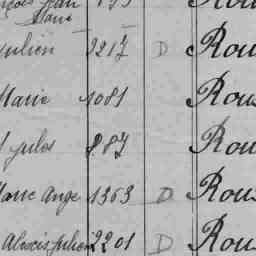 Marie
Julien 2217 D Rou
Marie 1081 Rous
Jules 887 Rou
Marie Ange 1363 D Rous
Alexis Julien 2201 D Rou